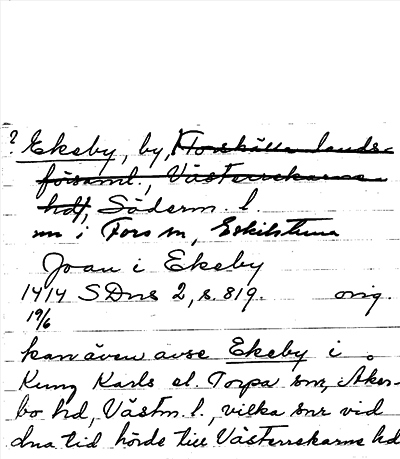 ? Ekeby, by, Torshälla lands-
församl., Västerrekarne
hd, Söderm. l.
nu i Fors sn, Eskilstuna
Joan i Ekeby
1414 SDns 2, s. 819. orig.
19/6
kan även avse Ekeby i
Kung Karls el. Torpa sn, Åker-
bo hd, Västm. l., vilka snr vid
dna tid hörde till Västerrekarne hd